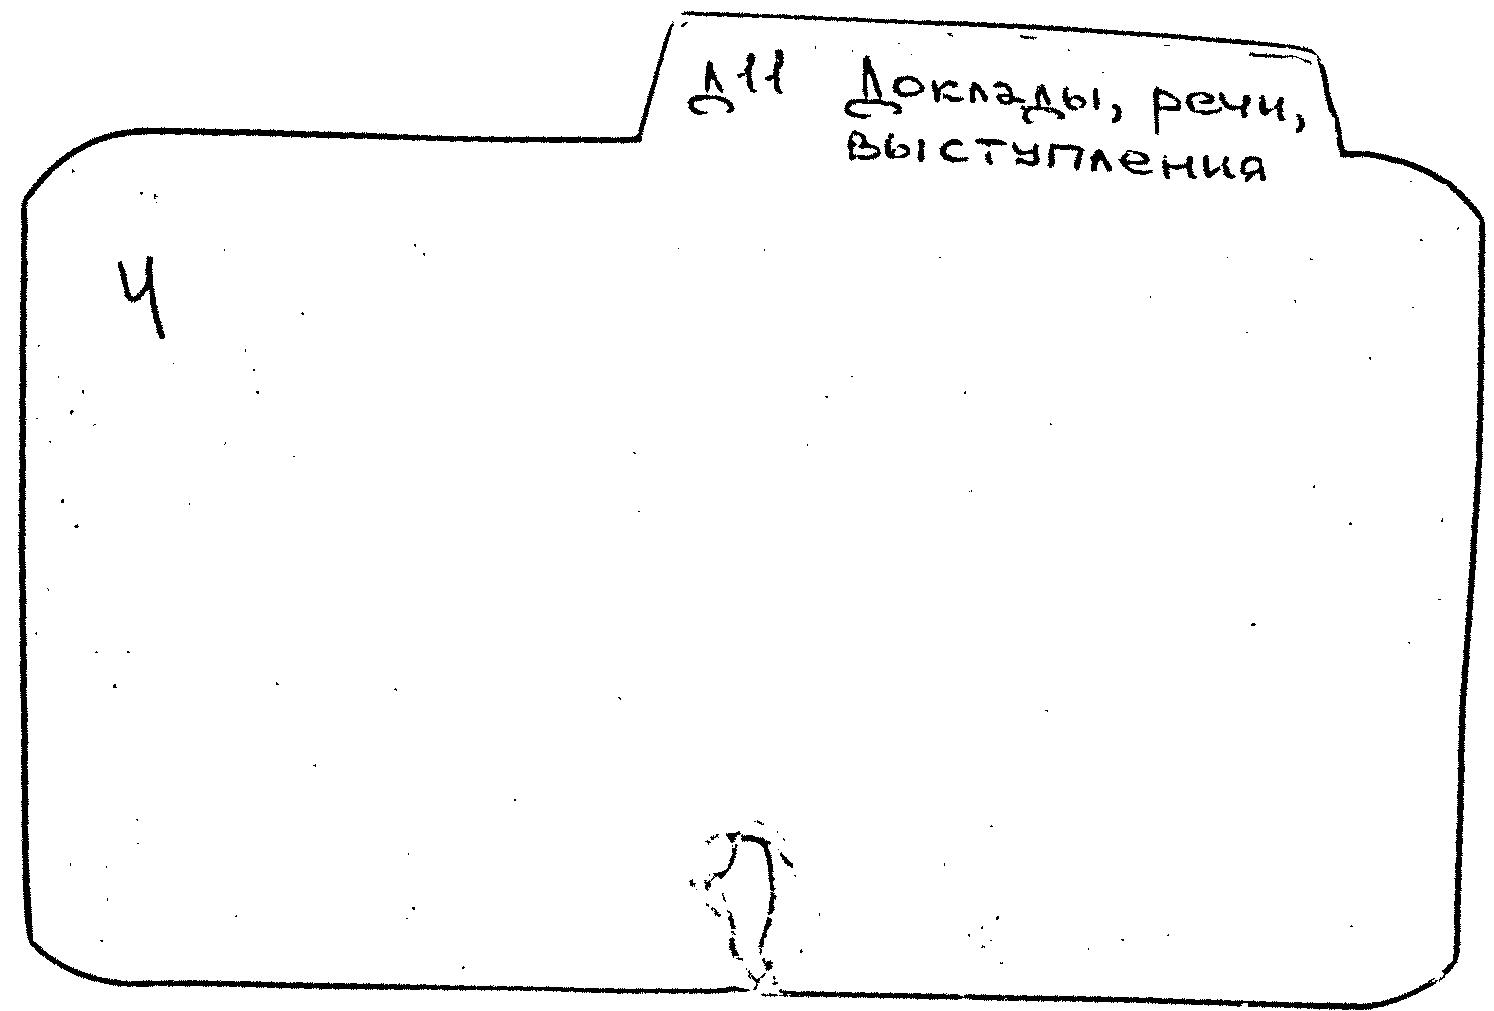 Д11 Доклады, речи,
выступления
Ч